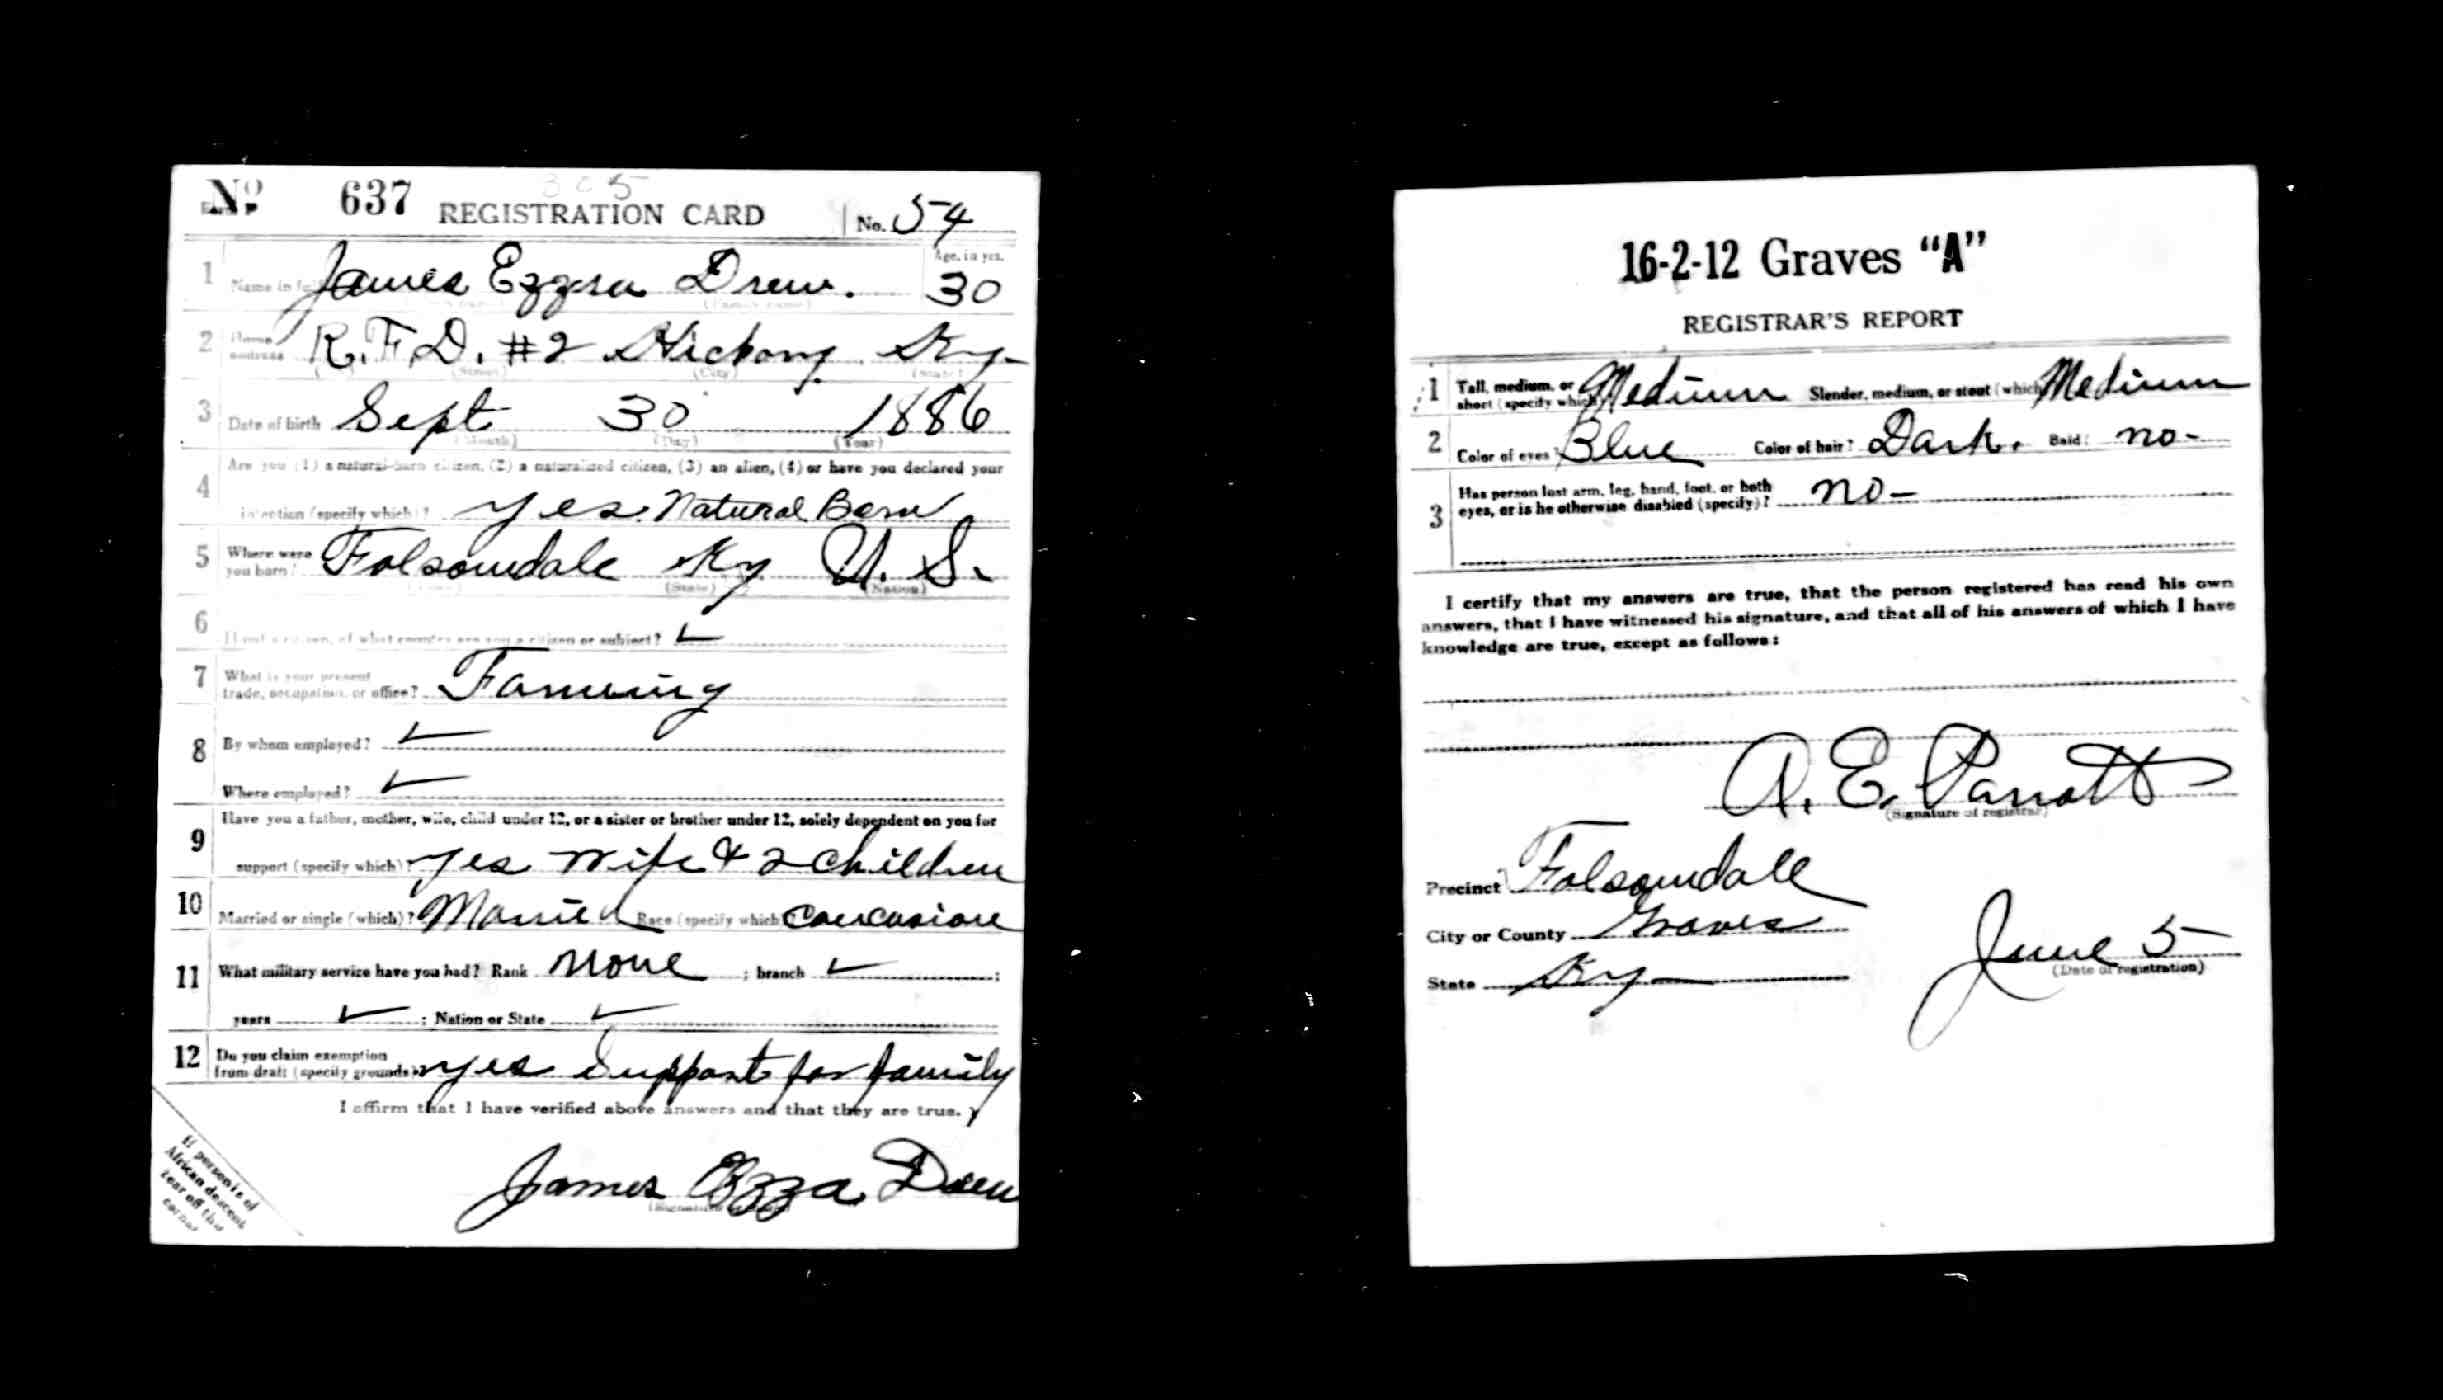 No 637 REGISTRATION CARD No. 54
305
1 Name in full James Ezzra Drew. Age, in yrs. 30
(Family name)
2 Home address R.F.D. #2 Hickory Ky-
(Street) (City) (State)
3 Date of birth Sept 30 1886
(Month) (Day) (Year)
4 Are you (1) a natural-born citizen, (2) a naturalized citizen, (3) an alien, (4) or have you declared your
intention (specify which)? yes. Natural Born
5 Where were you born? Folsomdale Ky U. S.
(State) (Nation)
6 If not a citizen, of what country are you a citizen or subject?
7 What is your present
trade, occupation, or office? Farming
8 By whom employed?
Where employed?
9 Have you a father, mother, wife, child under 12, or a sister or brother under 12, solely dependent on you for
support (specify which)? yes wife & 2 children
10 Married or single (which)? Married Race (specify which) Caucasian
11 What military service have you had? Rank None ; branch ;
years ; Nation or State
12 Do you claim exemption
from draft (specify grounds)? yes Support for family
I affirm that I have verified above answers and that they are true.
James Ezza Drew
(Signature
If person is of
African descent
tear off this
corner
16-2-12 Graves “A”
REGISTRAR'S REPORT
1 Tall, medium, or
short (specify which) Medium Slender, medium, or stout (which) Medium
2 Color of eyes? Blue Color of hair? Dark. Bald? no-
3 Has person lost arm, leg, hand, foot, or both
eyes, or is he otherwise disabled (specify)? no-
I certify that my answers are true, that the person registered has read his own
answers, that I have witnessed his signature, and that all of his answers of which I have
knowledge are true, except as follows:
A. E. Parrott
(Signature of registrar)
Precinct Folsomdale
City or County Graves
State Ky
June 5
(Date of registration)